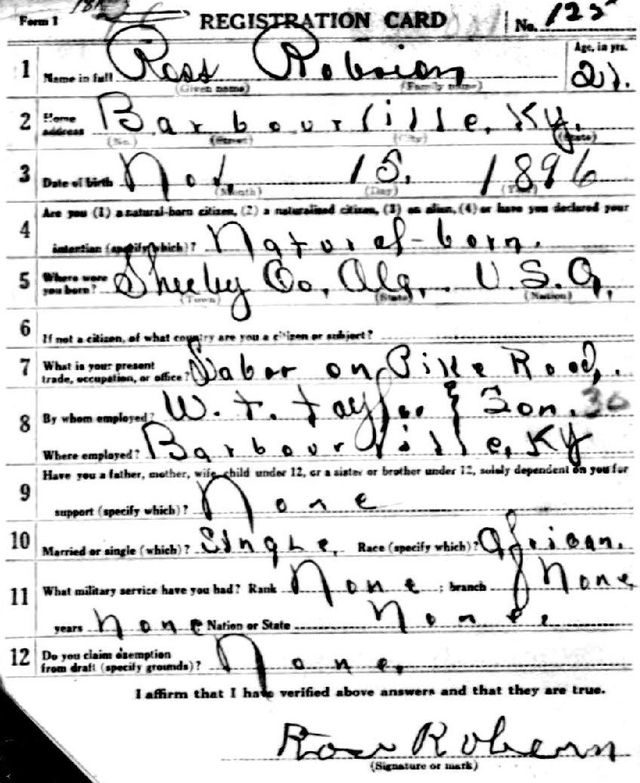 Form 1 REGISTRATION CARD No. 125
1 Name in full Ross Robsion Age, in yrs. 21.
(Given name) (Family name)
2 Home address Barbourville, Ky.
(No.) (Street) (City) (State)
3 Date of birth Nov. 15. 1896
(Month) (Day) (Year)
4 Are you (1) a natural-born citizen, (2) a naturalized citizen, (3) an alien, (4) or have you declared your
intention (specify which)? Natural-born.
5 Where were you born? Shelby Co, Ala, U.S.A,
(Town) (State) (Nation)
6 If not a citizen, of what country are you a citizen or subject?
7 What is your present trade, occupation, or office? Labor on Pike Road,.
8 By whom employed? W. T. & Son. 30
Where employed? Barbourville, Ky
9 Have you a father, mother, wife, child under 12, or a sister or brother under 12, solely dependent on you for
support (specify which)? None
10 Married or single (which)? Single, Race (specify which)? African.
11 What military service have you had? Rank None ; branch None
years none Nation or State None.
12 Do you claim exemption from draft (specify grounds)? None.
I affirm that I have verified above answers and that they are true.
Ross
(Signature or mark)